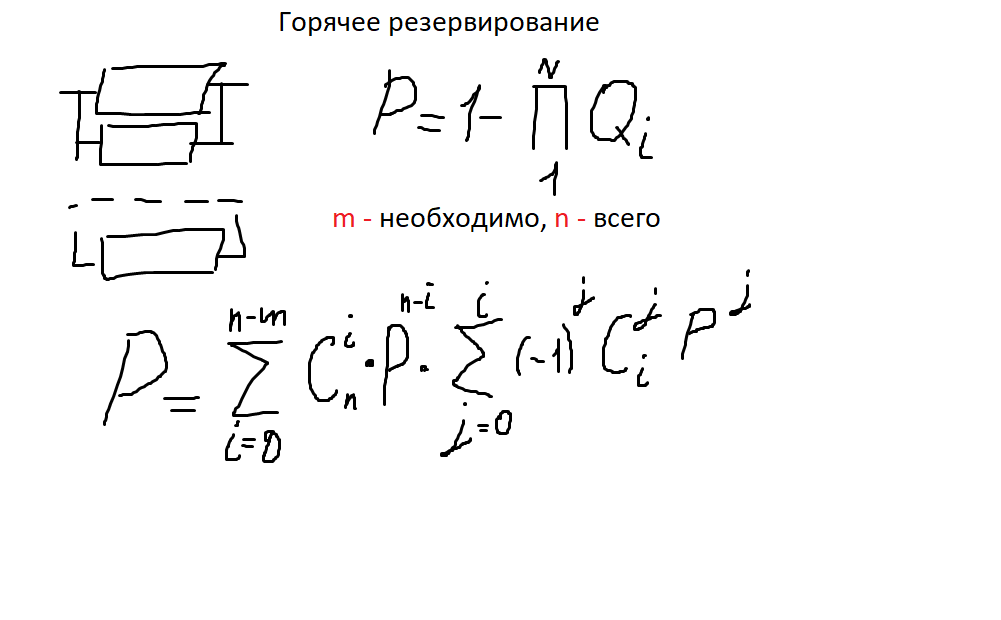 Горячее резервирование
P = 1 - ∏₁ᴺ Qᵢ
m - необходимо, n - всего
P = ∑ᵢ₌₀ⁿ⁻ᵐ Cₙⁱ · Pⁿ⁻ⁱ · ∑ⱼ₌₀ⁱ (-1)ʲ Cᵢʲ Pʲ